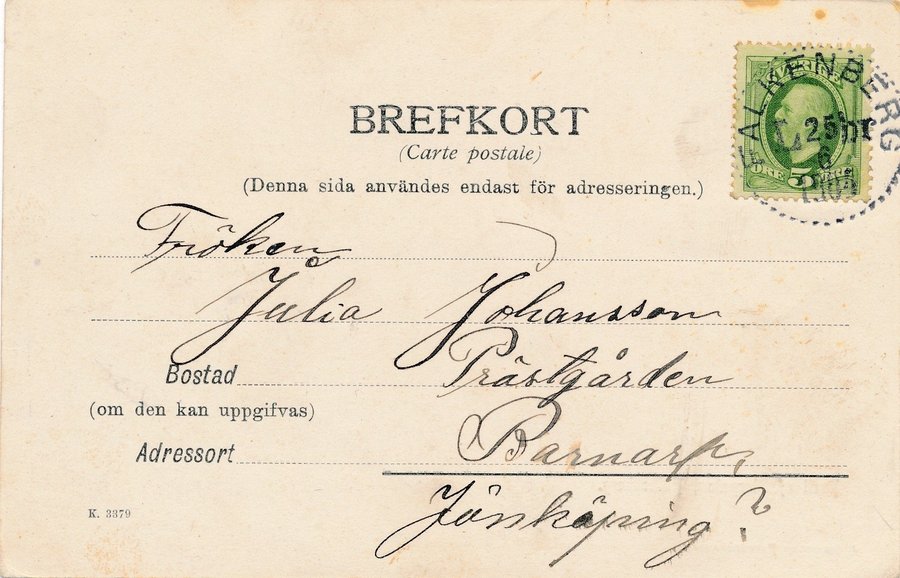 BREFKORT
(Carte postale)
(Denna sida användes endast för adresseringen.)
SVERIGE
FALKENBERG
25
6
ÖRE 5 ÖRE
Fröken
Julia Johansson
Bostad Prästgården
(om den kan uppgifvas)
Adressort Barnarp,
Jönköping ?
K. 3379